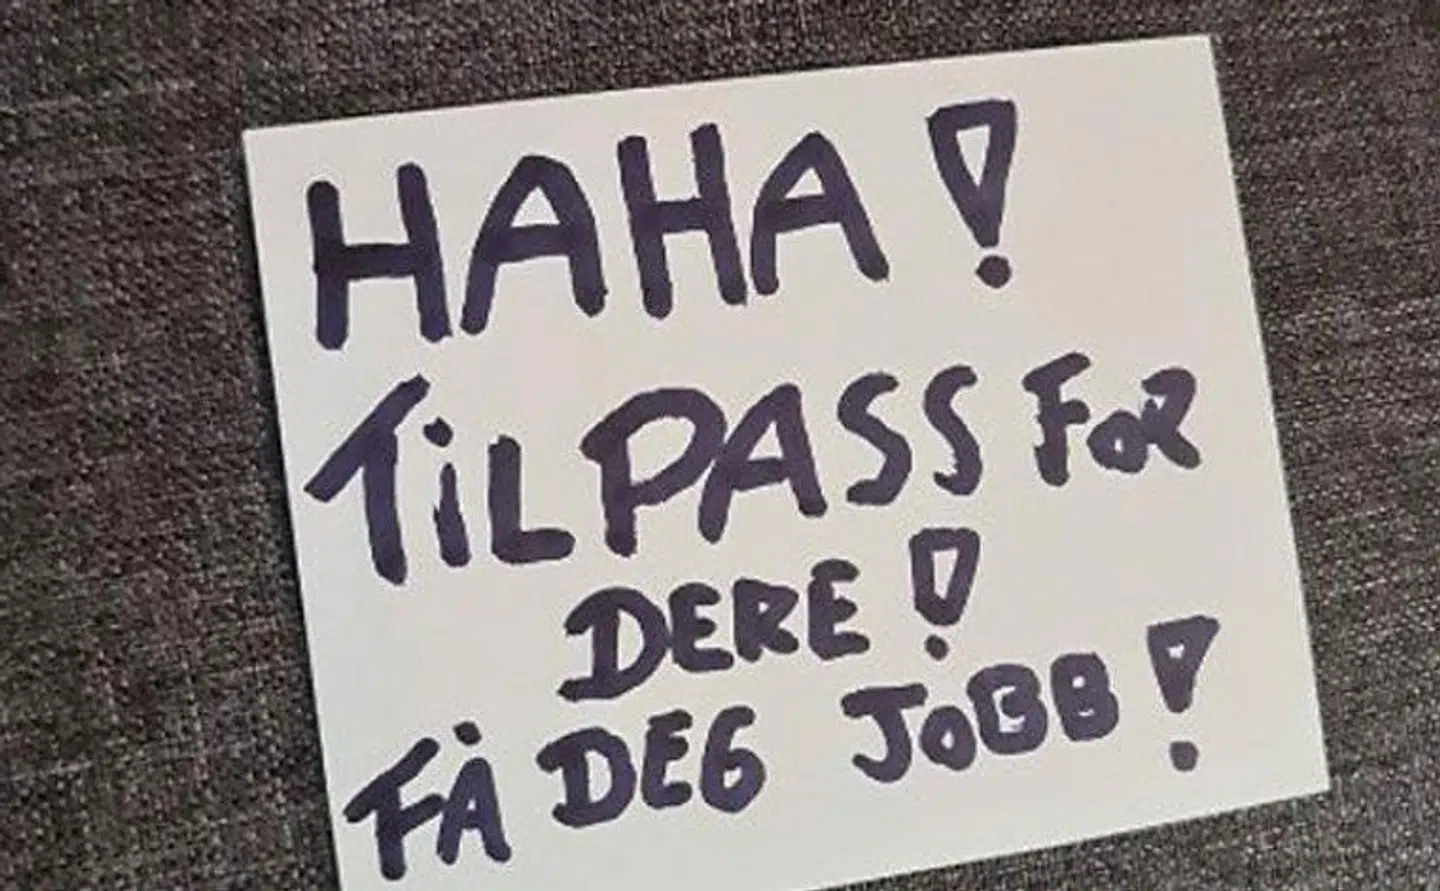 HAHA!
TiLPASS FOR
DERE!
FÅ DEG JOBB!